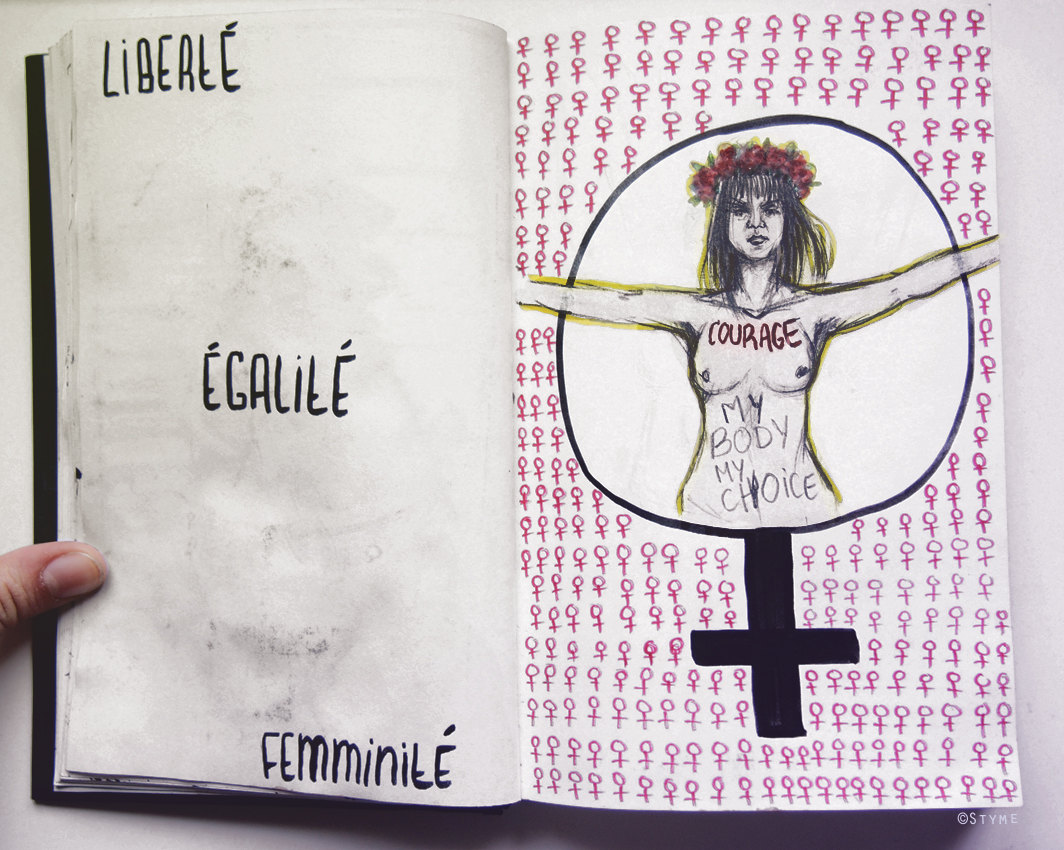 LIBERTÉ
ÉGALITÉ
FEMMINITÉ
COURAGE
MY
BODY
MY
CHOICE
©STYME